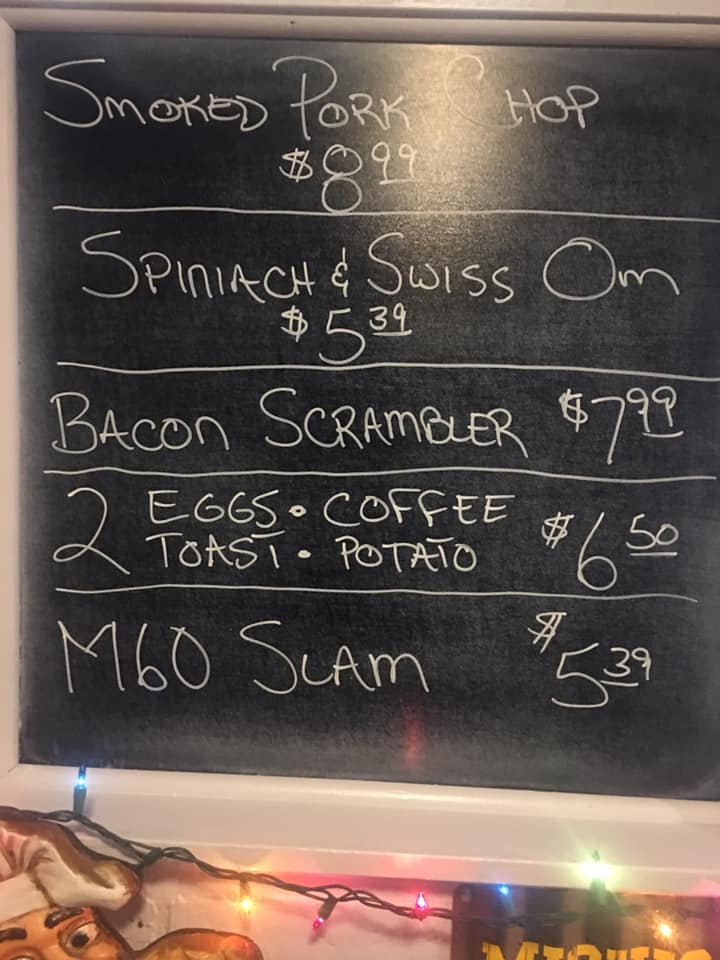 SMOKED PORK CHOP
$8.99
SPINIACH & SWISS OM
$5.39
BACON SCRAMBLER $7.99
2 EGGS • COFFEE $6.50
TOAST • POTATO
M60 SLAM $5.39